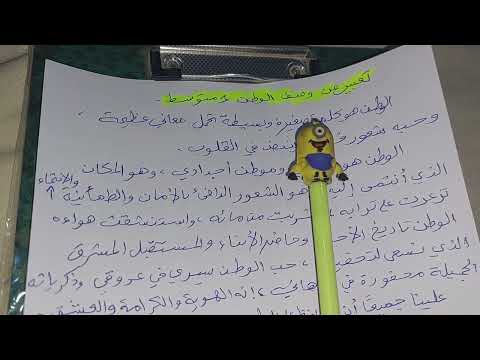 تعبير عن وصف الوطن 2 متوسط.
الوطن هو كلمة صغيرة وبسيطة تحمل معاني عظيمة،
وحبه شعور في القلوب.
الوطن هو وموطن أجدادي، وهو المكان
الذي أنتمي إليه هو الشعور الدافئ بالأمان والطمأنينة والانتماء
ترعرعت على ترابه، شربت من مائه، واستنشقت هواءه
الوطن تاريخ وحاضر الأبناء والمستقبل المشرق
الذي نسعى حب الوطن يسري في عروقي وذكرياته
الجميلة محفورة في إنه الهوية والكرامة والعشق
علينا جميعا أن